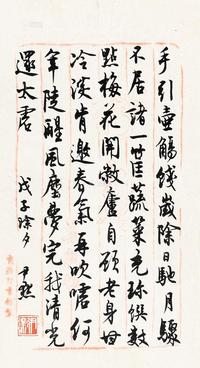 手引壺觴餞歲除日馳月驟
不居諸一筐蔬菜充珍饌數
點梅花開敝廬自顧老身毋
冷淡肯邀春氣再吹噓何
年陡醒風塵夢完我清光
還太虛 戊子除夕 尹